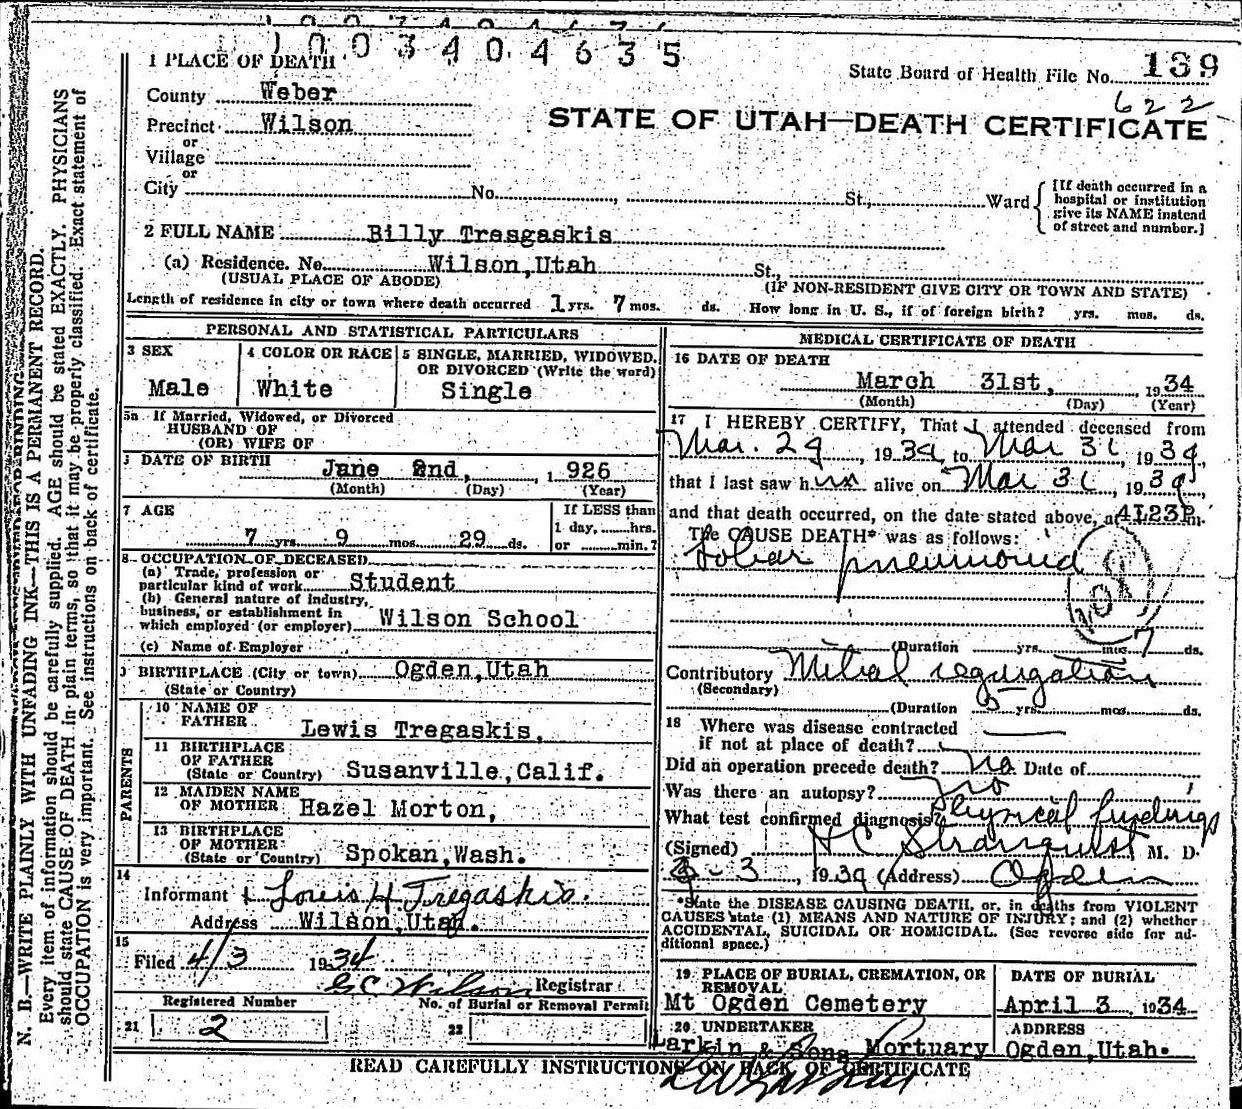 1 0 0 3 4 0 4 6 3 5
1 PLACE OF DEATH
State Board of Health File No. 139
622
County Weber
STATE OF UTAH—DEATH CERTIFICATE
Precinct Wilson
or
Village
or
City No. St., Ward
[If death occurred in a hospital or institution give its NAME instead of street and number.]
2 FULL NAME Billy Tresgaskis
(a) Residence. No. Wilson, Utah St.,
(USUAL PLACE OF ABODE) (IF NON-RESIDENT GIVE CITY OR TOWN AND STATE)
Length of residence in city or town where death occurred 1 yrs. 7 mos. ds. How long in U. S., if of foreign birth? yrs. mos. ds.
PERSONAL AND STATISTICAL PARTICULARS
3 SEX
Male
4 COLOR OR RACE
White
5 SINGLE, MARRIED, WIDOWED, OR DIVORCED (Write the word)
Single
5a If Married, Widowed, or Divorced
HUSBAND OF
(OR) WIFE OF
DATE OF BIRTH Jane 2nd, 1926
(Month) (Day) (Year)
7 AGE
7 yrs. 9 mos. 29 ds.
If LESS than
1 day, hrs.
or min.?
8 OCCUPATION OF DECEASED
(a) Trade, profession or
particular kind of work Student
(b) General nature of industry,
business, or establishment in
which employed (or employer) Wilson School
(c) Name of Employer
BIRTHPLACE (City or town) Ogden, Utah
(State or Country)
PARENTS
10 NAME OF
FATHER Lewis Tregaskis,
11 BIRTHPLACE
OF FATHER
(State or Country) Susanville, Calif.
12 MAIDEN NAME
OF MOTHER Hazel Morton,
13 BIRTHPLACE
OF MOTHER
(State or Country) Spokan, Wash.
14
Informant Louis H Tregaskis.
Address Wilson, Utah.
15
Filed 4/3 1934
Registrar
Registered Number
21 2
No. of Burial or Removal Permit
22
MEDICAL CERTIFICATE OF DEATH
16 DATE OF DEATH
March 31st, 1934
(Month) (Day) (Year)
17 I HEREBY CERTIFY, That I attended deceased from
Mar. 29, 1934, to Mar 31, 1934,
that I last saw him alive on Mar 31, 1934,
and that death occurred, on the date stated above, at
The CAUSE DEATH* was as follows:
Lobar pneumonia
108
(Duration yrs. mos. 7 ds.
Contributory Mitral regurgitation
(Secondary)
(Duration 5 yrs. mos. ds.
18 Where was disease contracted
if not at place of death?
Did an operation precede death? no. Date of
Was there an autopsy? no
What test confirmed diagnosis? Physical findings
(Signed) H C Stranquist M. D.
3, 1934 (Address) Ogden
*State the DISEASE CAUSING DEATH, or, in deaths from VIOLENT
CAUSES state (1) MEANS AND NATURE OF INJURY; and (2) whether
ACCIDENTAL, SUICIDAL OR HOMICIDAL. (See reverse side for additional space.)
19 PLACE OF BURIAL, CREMATION, OR REMOVAL
Mt Ogden Cemetery
DATE OF BURIAL
April 3 1934
20 UNDERTAKER
Larkin & Sons Mortuary
ADDRESS
Ogden, Utah.
READ CAREFULLY INSTRUCTIONS ON BACK OF CERTIFICATE
N. B.—WRITE PLAINLY WITH UNFADING INK—THIS IS A PERMANENT RECORD.
Every item of information should be carefully supplied. AGE should be stated EXACTLY. PHYSICIANS
should state CAUSE OF DEATH in plain terms, so that it may be properly classified. Exact statement of
OCCUPATION is very important. See instructions on back of certificate.